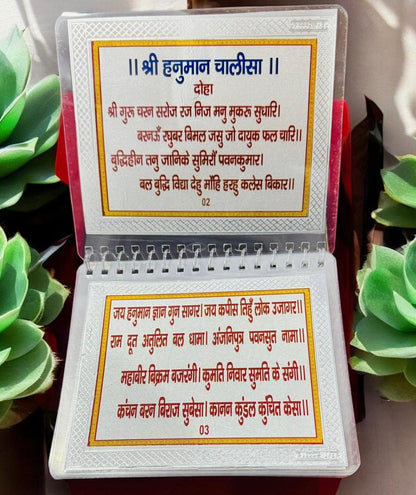 ॥ श्री हनुमान चालीसा ॥
दोहा
श्री गुरू चरन सरोज रज निज मनु मुकरू सुधारि।
बरनऊँ रघुबर बिमल जसु जो दायुक फल चारि॥
बुद्धिहीन तनु जानिके सुमिरौं पवनकुमार।
बल बुद्धि विद्या देहु मोंहि हरहु कलेस बिकार॥
02
जय हनुमान ज्ञान गुन सागर। जय कपीस तिहुँ लोक उजागर॥
राम दूत अतुलित बल धामा। अंजनिपुत्र पवनसुत नामा॥
महाबीर विक्रम बजरंगी। कुमति निवार सुमति के संगी॥
कंचन बरन बिराज सुबेसा। कानन कुंडल कुंचित केसा॥
03